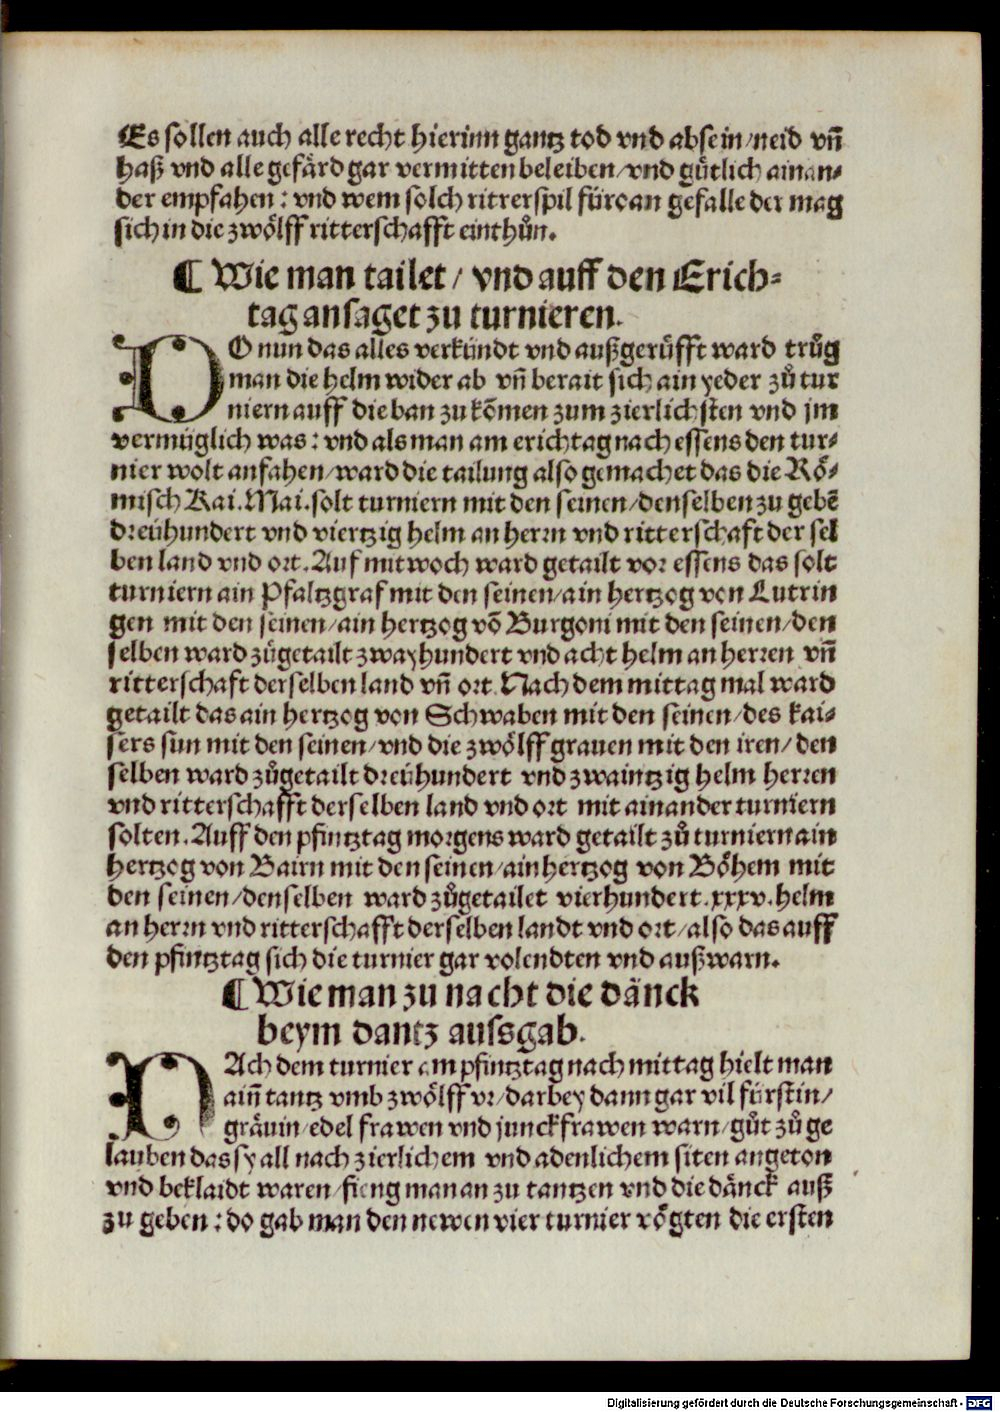 Es sollen auch alle recht hierinn gantz tod vnd absein/neid vn̄
haß vnd alle gefärd gar vermitten beleiben/vnd gütlich ainan⸗
der empfahen: vnd wem solch ritrerspil füroan gefalle der mag
sich in die zwölff ritterschafft einthůn.
¶ Wie man tailet/ vnd auff den Erich⸗
tag ansaget zu turnieren.
DO nun das alles verkündt vnd außgerüfft ward trůg
man die helm wider ab vn̄ berait sich ain yeder zů tur
niern auff die ban zu kōmen zum zierlichsten vnd jm
vermüglich was: vnd als man am erichtag nach essens den tur⸗
nier wolt anfahen/ward die tailung also gemachet das die Rö⸗
misch Kai. Mai. solt turniern mit den seinen/denselben zu gebē
dreühundert vnd viertzig helm an herrn vnd ritterschaft der sel
ben land vnd ort. Auf mitwoch ward getailt vor essens das solt
turniern ain Pfaltzgraf mit den seinen/ain hertzog von Lutrin
gen mit den seinen/ain hertzog vō Burgoni mit den seinen/den
selben ward zůgetailt zwayhundert vnd acht helm an herren vn̄
ritterschaft derselben land vn̄ ort. Nach dem mittag mal ward
getailt das ain hertzog von Schwaben mit den seinen/des kai⸗
sers sun mit den seinen/vnd die zwölff grauen mit den iren/den
selben ward zůgetailt dreühundert vnd zwaintzig helm herren
vnd ritterschafft derselben land vnd ort mit ainander turniern
solten. Auff den pfintztag morgens ward getailt zů turniern ain
hertzog von Bairn mit den seinen/ain hertzog von Böhem mit
den seinen/denselben ward zůgetailet vierhundert.xxxv.helm
an herrn vnd ritterschafft derselben landt vnd ort/also das auff
den pfintztag sich die turnier gar volendten vnd auß warn.
¶ Wie man zu nacht die dänck
beym dantz aussgab.
NAch dem turnier am pfintztag nach mittag hielt man
ain̄ tantz vmb zwölff vr/darbey dann gar vil fürstin/
gräuin/edel frawen vnd junckfrawen warn/gůt zů ge
lauben das sy all nach zierlichem vnd adenlichem siten angeton
vnd beklaidt waren/fieng man an zu tantzen vnd die dänck auß
zu geben: do gab man den newen vier turnier vögten die ersten
Digitalisierung gefördert durch die Deutsche Forschungsgemeinschaft - DFG